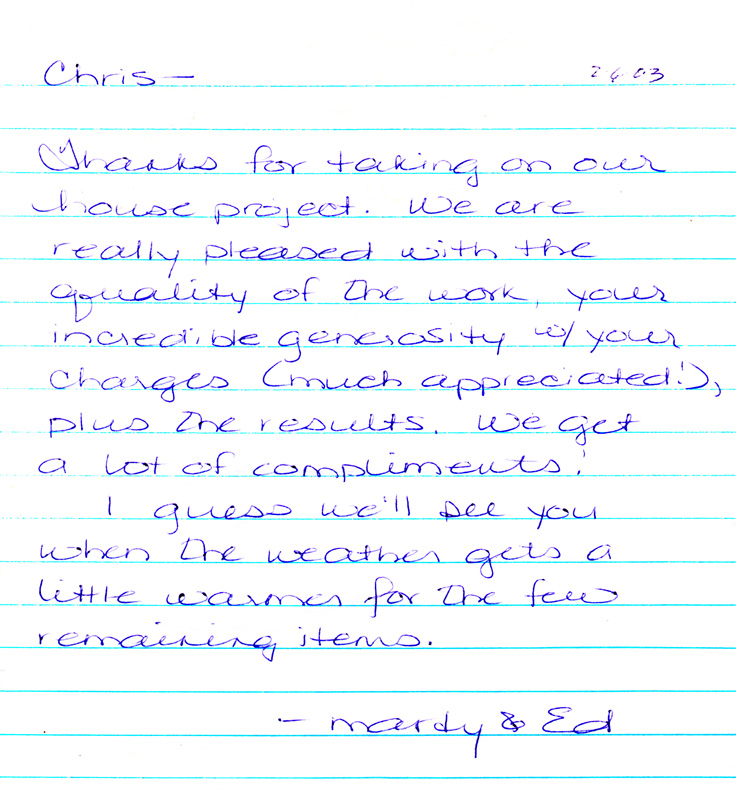 Chris — 2.6.03
Thanks for taking on our
house project. We are
really pleased with the
quality of the work, your
incredible generosity w/ your
charges (much appreciated!),
plus the results. We get
a lot of compliments!
I guess we'll see you
when the weather gets a
little warmer for the few
remaining items.
— Mardy & Ed